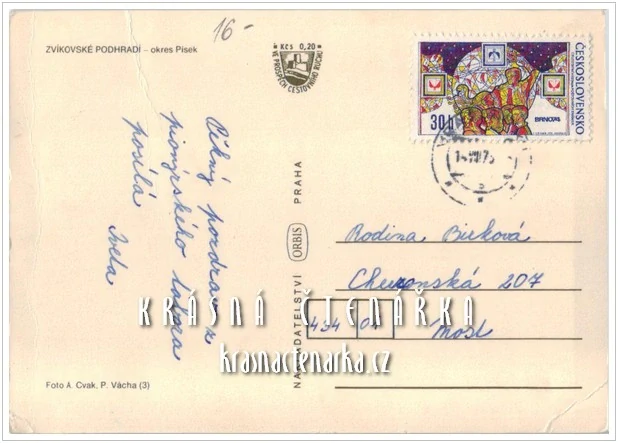 16-
ZVÍKOVSKÉ PODHRADÍ – okres Písek
Kčs 0,20
VE PROSPĚCH CESTOVNÍHO RUCHU
ČESKOSLOVENSKO
30h
BRNO 74
Pěkný pozdrav z
pionýrského tábora
posílá
Iveta
NAKLADATELSTVÍ ORBIS PRAHA
Rodina
207
434 01
Most
KRÁSNÁ ČTENÁŘKA
krasnactenarka.cz
Foto A. Cvak, P. Vácha (3)